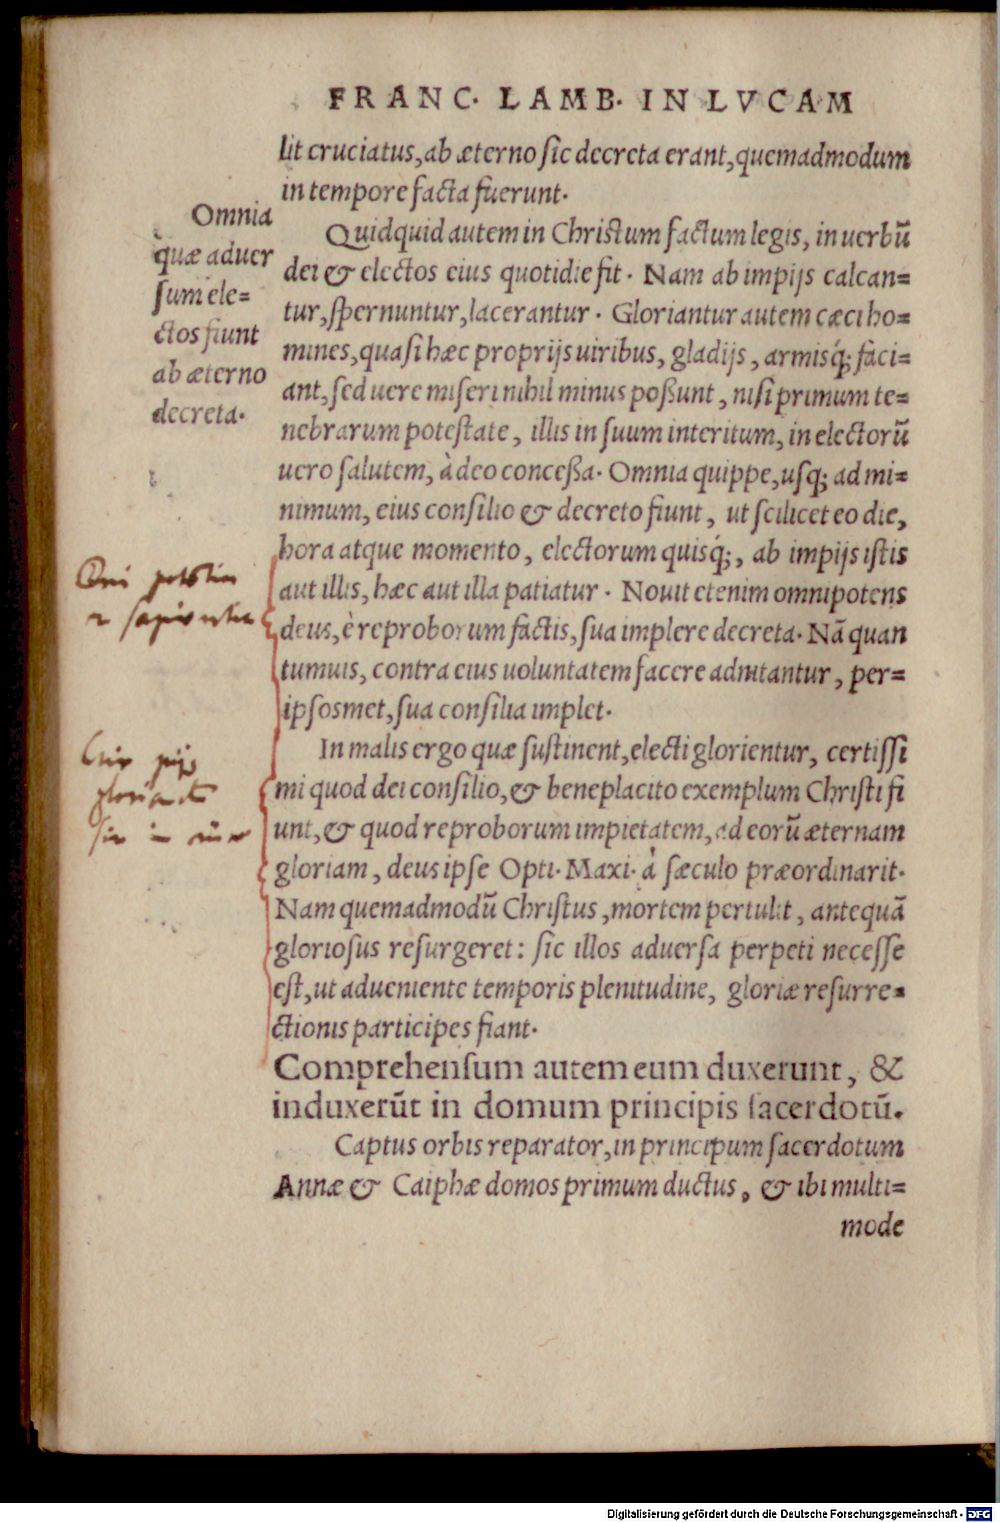 FRANC. LAMB. IN LVCAM
lit cruciatus, ab æterno sic decreta erant, quemadmodum
in tempore facta fuerunt.
Omnia
quæ aduer
sum ele=
ctos fiunt
ab æterno
decreta.
Quidquid autem in Christum factum legis, in uerbũ
dei & electos eius quotidie fit. Nam ab impijs calcan=
tur, spernuntur, lacerantur. Gloriantur autem cæci ho=
mines, quasi hæc proprijs uiribus, gladijs, armisq́; faci=
ant, sed uere miseri nihil minus poßunt, nisi primum te=
nebrarum potestate, illis in suum interitum, in electorũ
uero salutem, à deo conceßa. Omnia quippe, usq; ad mi=
nimum, eius consilio & decreto fiunt, ut scilicet eo die,
hora atque momento, electorum quisq́;, ab impijs istis
aut illis, hæc aut illa patiatur. Nouit etenim omnipotens
deus, è reproborum factis, sua implere decreta. Nã quan
tumuis, contra eius uoluntatem facere adnitantur, per=
ipsosmet, sua consilia implet.
In malis ergo quæ sustinent, electi glorientur, certissi
mi quod dei consilio, & beneplacito exemplum Christi fi
unt, & quod reproborum impietatem, ad eorũ æternam
gloriam, deus ipse Opti. Maxi. à sæculo præordinarit.
Nam quemadmodũ Christus, mortem pertulit, antequã
gloriosus resurgeret: sic illos aduersa perpeti necesse
est, ut adueniente temporis plenitudine, gloriæ resurre=
ctionis participes fiant.
Comprehensum autem eum duxerunt, &
induxerũt in domum principis sacerdotũ.
Captus orbis reparator, in principum sacerdotum
Annæ & Caiphæ domos primum ductus, & ibi multi=
mode
Digitalisierung gefördert durch die Deutsche Forschungsgemeinschaft - DFG